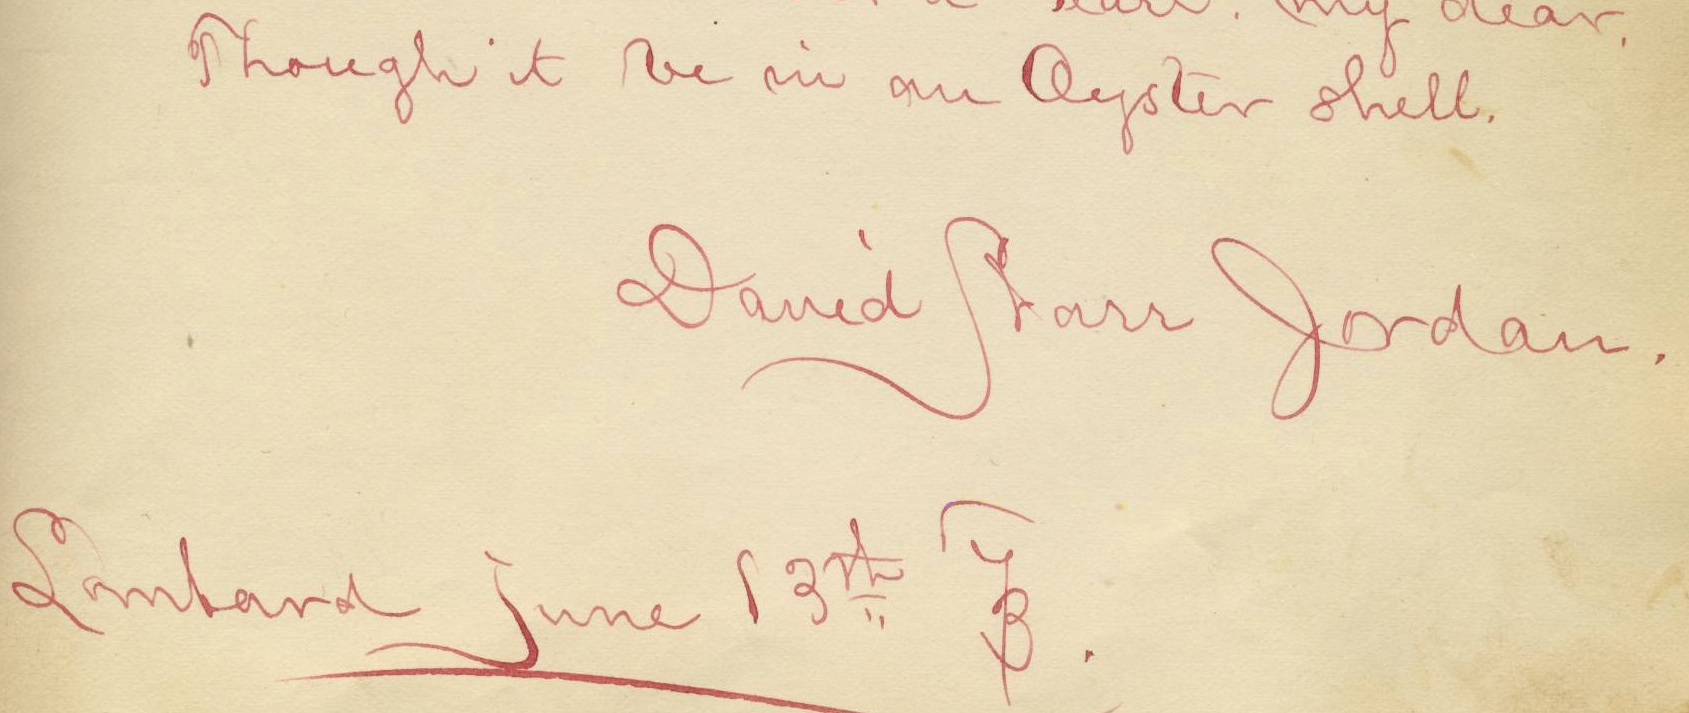 my dear,
Though it be in an Oyster shell.
David Starr Jordan.
Lombard June 13th